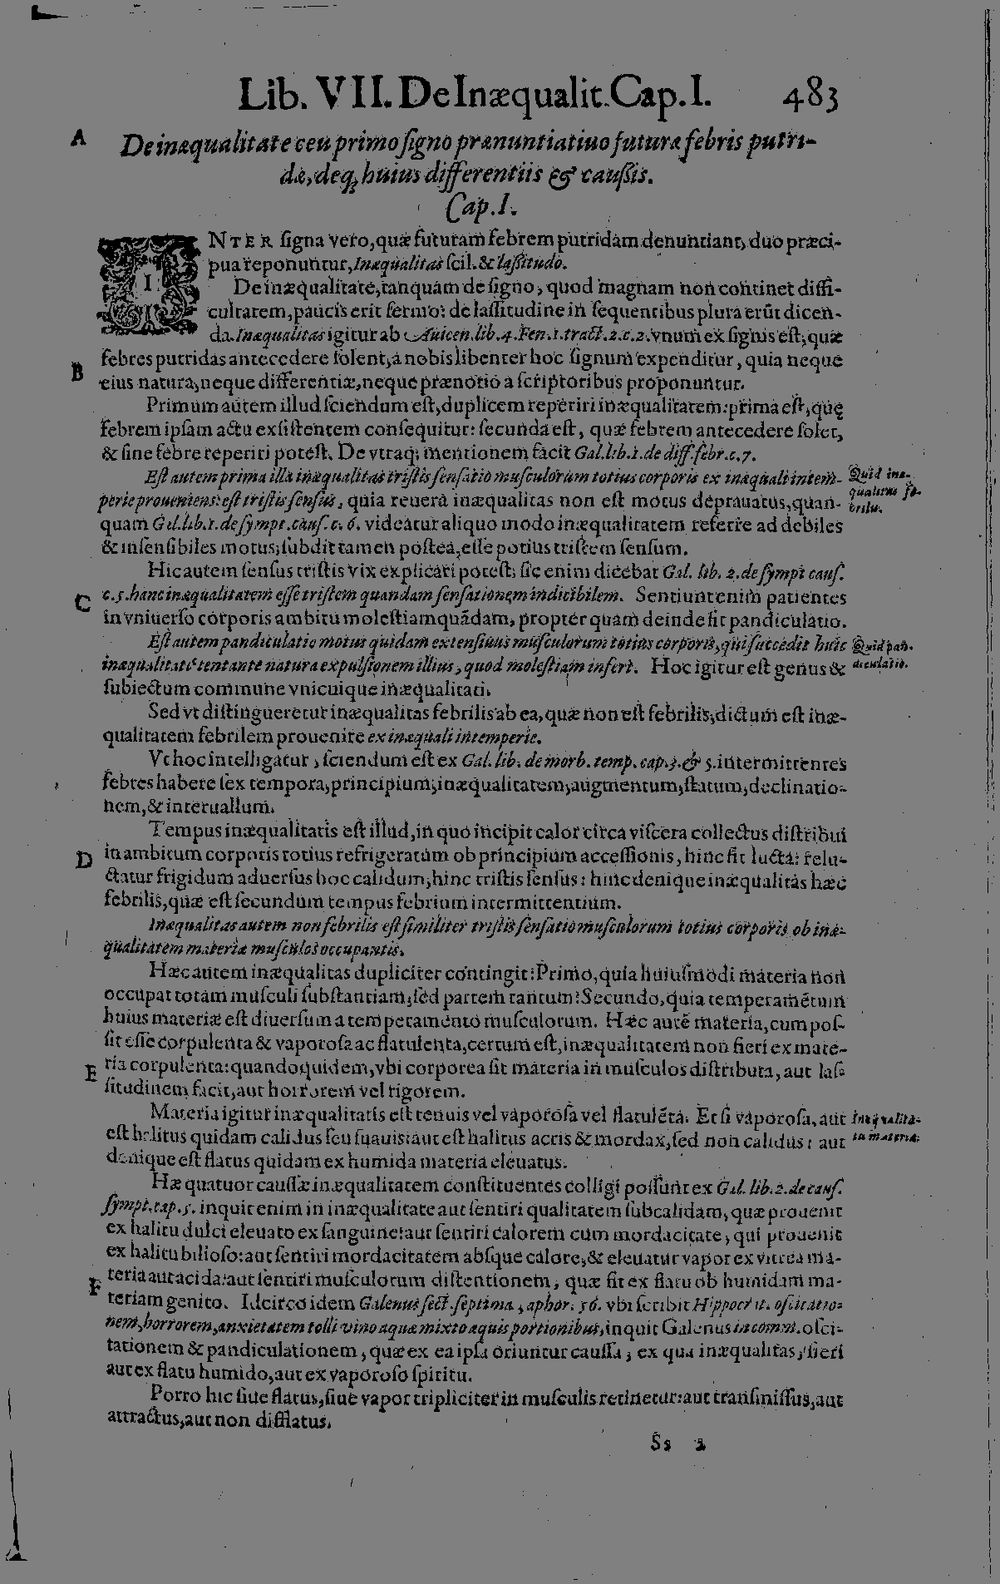 Lib. VII. De Inæqualit. Cap. I. 483
A De inæqualitate ceu primo ſigno prænuntiatiuo futuræ febris putri-
dæ, deq; huius differentiis & cauſsis.
Cap. I.
INTER ſigna vero, quæ futuram febrem putridam denuntiant, duo præci-
pua reponuntur, Inæqualitas ſcil. & laſsitudo.
De inæqualitate, tanquam de ſigno, quod magnam non continet diffi-
cultatem, paucis erit ſermo: de laſſitudine in ſequentibus plura erūt dicen-
da. Inæqualitas igitur ab Auicen. lib. 4. Fen. 1. tract. 2. c. 2. vnum ex ſignis eſt, quæ
febres putridas antecedere ſolent, à nobis libenter hoc ſignum expenditur, quia neque
B eius natura, neque differentiæ, neque prænotio a ſcriptoribus proponuntur.
Primum autem illud ſciendum eſt, duplicem reperiri inæqualitatem: prima eſt, quę
febrem ipſam actu exſiſtentem conſequitur: ſecunda eſt, quæ febrem antecedere ſolet,
& ſine febre reperiri poteſt. De vtraq; mentionem facit Gal. lib. 1. de diff. febr. c. 7.
Eſt autem prima illa inæqualitas triſtis ſenſatio muſculorum totius corporis ex inæquali intem-
perie proueniens: eſt triſtis ſenſus, quia reuerà inæqualitas non eſt motus deprauatus, quan-
quam Gal. lib. 1. de ſympt. cauſ. c. 6. videatur aliquo modo inæqualitatem referre ad debiles
& inſenſibiles motus; ſubdit tamen poſtea, eſſe potius triſtem ſenſum.
Quid inæ-
qualitas fe-
brilis.
Hic autem ſenſus triſtis vix explicari poteſt; ſic enim dicebat Gal. lib. 2. de ſympt cauſ.
C c. 5. hanc inæqualitatem eſſe triſtem quandam ſenſationem indicibilem. Sentiunt enim patientes
in vniuerſo corporis ambitu moleſtiam quādam, propter quam deinde fit pandiculatio.
Eſt autem pandiculatio motus quidam extenſiuus muſculorum totius corporis, qui ſuccedit huic
inæqualitati tentante natura expulſionem illius, quod moleſtiam infert. Hoc igitur eſt genus &
ſubiectum commune vnicuique inæqualitati.
Quid pan-
diculatio.
Sed vt diſtingueretur inæqualitas febrilis ab ea, quæ non eſt febrilis, dictum eſt inæ-
qualitatem febrilem prouenire ex inæquali intemperie.
Vt hoc intelligatur, ſciendum eſt ex Gal. lib. de morb. temp. cap. 3. & 5. intermittentes
febres habere ſex tempora, principium, inæqualitatem, augmentum, ſtatum, declinatio-
nem, & interuallum.
Tempus inæqualitatis eſt illud, in quo incipit calor circa viſcera collectus diſtribui
D in ambitum corporis totius refrigeratum ob principium acceſſionis, hinc fit lucta: relu-
ctatur frigidum aduerſus hoc calidum; hinc triſtis ſenſus: hinc denique inæqualitas hæc
febrilis, quæ eſt ſecundum tempus febrium intermittentium.
Inæqualitas autem non febrilis eſt ſimiliter triſtis ſenſatio muſculorum totius corporis ob inæ-
qualitatem materiæ muſculos occupantis.
Hæc autem inæqualitas dupliciter contingit: Primo, quia huiuſmodi materia non
occupat totam muſculi ſubſtantiam, ſed partem tantum: Secundo, quia temperamētum
huius materiæ eſt diuerſum a temperamento muſculorum. Hæc autē materia, cum poſ-
ſit eſſe corpulenta & vaporoſa ac flatulenta, certum eſt, inæqualitatem non fieri ex mate-
E ria corpulenta: quandoquidem, vbi corporea ſit materia in muſculos diſtributa, aut laſ-
ſitudinem facit, aut horrorem vel rigorem.
Materia igitur inæqualitatis eſt tenuis vel vaporoſa vel flatulēta. Et ſi vaporoſa, aut
eſt halitus quidam calidus ſeu ſuauis: aut eſt halitus acris & mordax, ſed non calidus: aut
denique eſt flatus quidam ex humida materia eleuatus.
Inæqualita-
tis materia.
Hæ quatuor cauſſæ inæqualitatem conſtituentes colligi poſſunt ex Gal. lib. 2. de cauſ.
ſympt. cap. 5. inquit enim in inæqualitate aut ſentiri qualitatem ſubcalidam, quæ prouenit
ex halitu dulci eleuato ex ſanguine: aut ſentiri calorem cum mordacitate, qui prouenit
ex halitu bilioſo: aut ſentiri mordacitatem abſque calore, & eleuatur vapor ex vitrea ma-
F teria aut acida: aut ſentiri muſculorum diſtentionem, quæ fit ex flatu ob humidam ma-
teriam genito. Idcirco idem Galenus ſect. ſeptima, aphor. 56. vbi ſcribit Hippocr it. oſcitatio-
nem, horrorem, anxietatem tolli vino aquæ mixto æquis portionibus, inquit Galenus in comm. oſci-
tationem & pandiculationem, quæ ex ea ipſa oriuntur cauſſa, ex qua inæqualitas, fieri
aut ex flatu humido, aut ex vaporoſo ſpiritu.
Porro hic ſiue flatus, ſiue vapor tripliciter in muſculis retinetur: aut tranſmiſſus, aut
attractus, aut non difflatus.
Ss 2